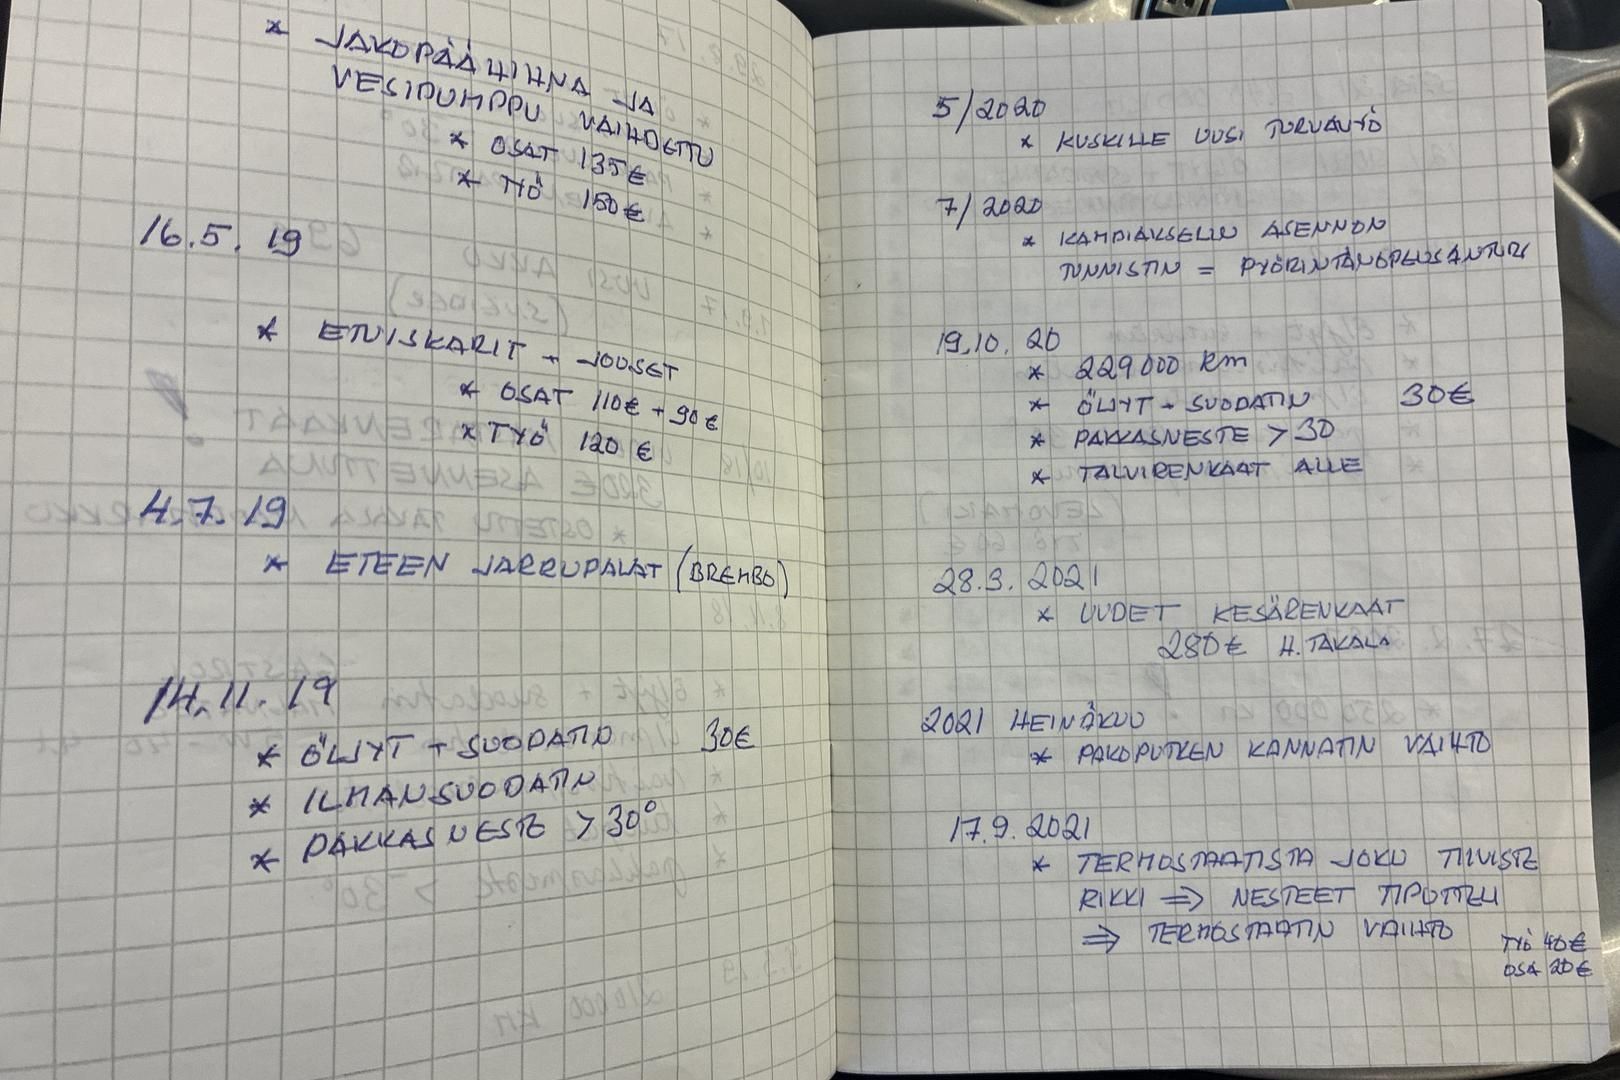 * JAKOPÄÄHIHNA JA
VESIPUMPPU VAIHDETTU
* OSAT 135€
* TYÖ 150€
16.5. 19
* ETUISKARIT + JOUSET
* OSAT 110€ + 90€
* TYÖ 120 €
4.7. 19
* ETEEN JARRUPALAT (BREMBO)
14.11. 19
* ÖLJYT + SUODATIN 30€
* ILMANSUODATIN
* PAKKASNESTE > 30°
5/2020
* KUSKILLE UUSI TURVAVYÖ
7/2020
* KAMPIAKSELIN ASENNON
TUNNISTIN = PYÖRINTÄNOPEUSANTURI
19.10. 20
* 229000 km
* ÖLJYT + SUODATIN 30€
* PAKKASNESTE > 30
* TALVIRENKAAT ALLE
28.3. 2021
* UUDET KESÄRENKAAT
280€ H. TAKALA
2021 HEINÄKUU
* PAKOPUTKEN KANNATIN VAIHTO
17.9. 2021
* TERMOSTAATISTA JOKU TIIVISTE
RIKKI ⇒ NESTEET TIPOTTELI
⇒ TERMOSTAATIN VAIHTO
TYÖ 40€
OSA 20€